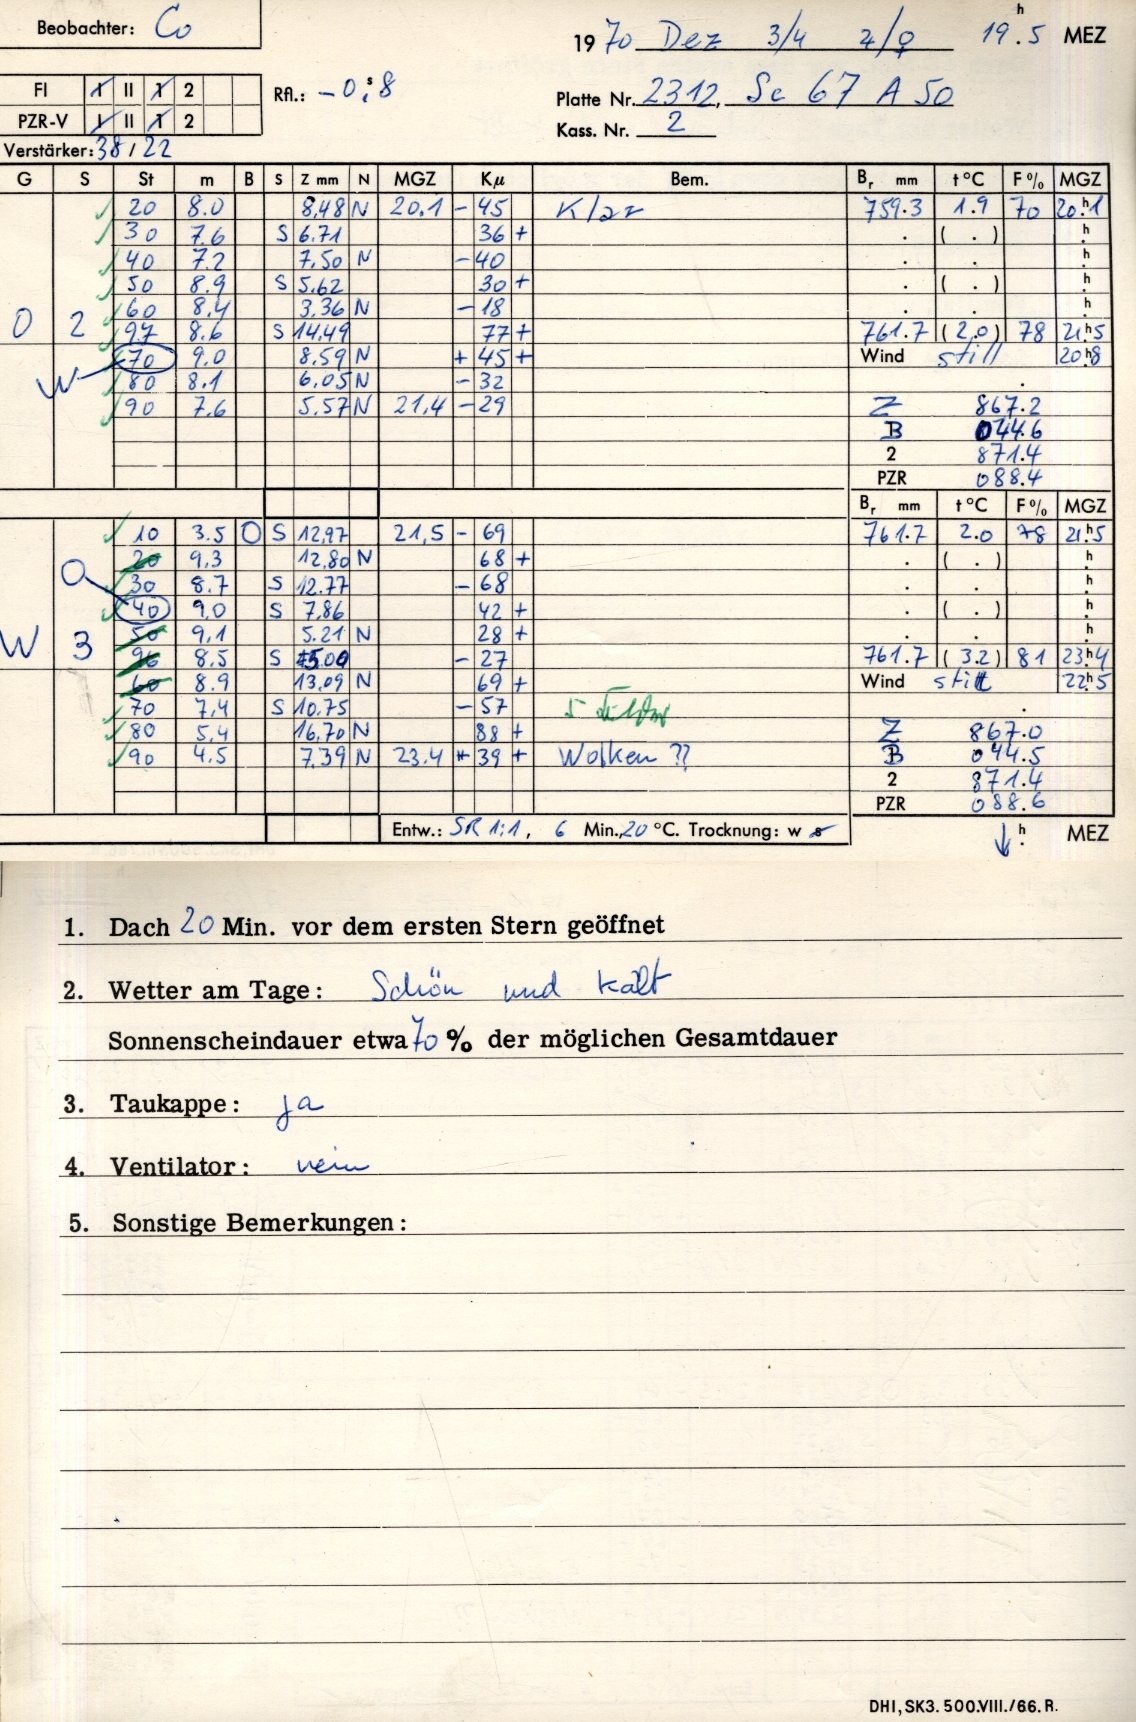 Beobachter: Co
1970 Dez 3/4 4/♀ 19h.5 MEZ
FI I II 1 2
Rfl.: -0s.8
Platte Nr. 2312, Sc 67 A 50
PZR-V I II 1 2
Kass. Nr. 2
Verstärker: 38 / 22
G S St m B S Z mm N MGZ Kμ Bem. Br mm t°C F% MGZ
20 8.0 8,48 N 20.1 - 45 Klar 759.3 1.9 70 20h.1
30 7.6 S 6.71 36 + . ( . ) h.
40 7.2 7.50 N - 40 . . h.
50 8.9 S 5.62 30 + . ( . ) h.
60 8.4 3.36 N - 18 . . h.
O 2 97 8.6 S 14.49 77 + 761.7 (2.0) 78 21h.5
W 70 9.0 8.59 N + 45 + Wind still 20h.8
80 8.1 6.05 N - 32 .
90 7.6 5.57 N 21,4 - 29 Z 867.2
B 044.6
2 871.4
PZR 088.4
Br mm t°C F% MGZ
10 3.5 O S 12,97 21,5 - 69 761.7 2.0 78 21h.5
20 9,3 12,80 N 68 + . ( . ) h.
O 30 8.7 S 12.77 - 68 . . h.
40 9,0 S 7,86 42 + . ( . ) h.
50 9,1 5.21 N 28 + . . h.
W 3 96 8,5 S 5.00 - 27 761.7 (3.2) 81 23h.4
60 8.9 13,09 N 69 + Wind still 22h.5
70 7,4 S 10.75 - 57 .
80 5,4 16,70 N 88 + Z 867.0
90 4.5 7.39 N 23.4 + 39 + Wolken ?? B 044.5
2 871.4
PZR 088.6
Entw.: SR 1:1, 6 Min., 20 °C. Trocknung: w s ↓ h. MEZ
1. Dach 20 Min. vor dem ersten Stern geöffnet
2. Wetter am Tage: Schön und kalt
Sonnenscheindauer etwa 70 % der möglichen Gesamtdauer
3. Taukappe: ja
4. Ventilator: nein
5. Sonstige Bemerkungen:
DHI, SK3. 500.VIII./66. R.